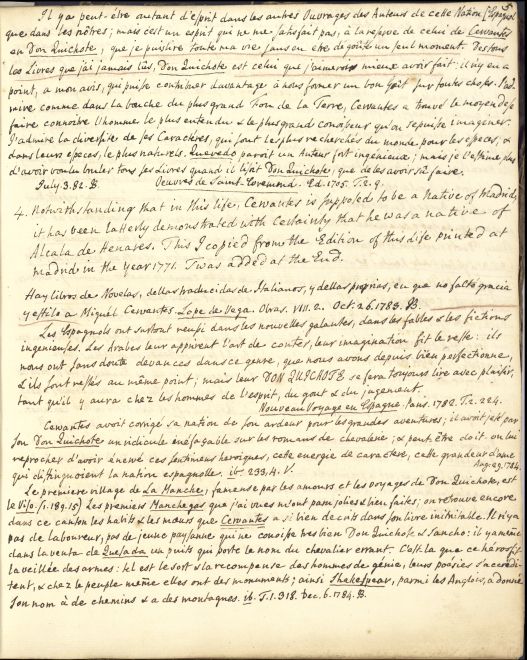 5
Il y a peut-être autant d'esprit dans les autres Ouvrages des Auteurs de cette Nation [Espagnol
que dans les nôtres; mais c'est un esprit qui ne me satisfait pas, à la réserve de celui de Cervantes
en Don Quichote, que je puis lire toute ma vie sans en être degoûté un seul moment. De tous
les Livres que j'ai jamais lûs, Don Quichote est celui que j'aimerois mieux avoir fait: il n'y en a
point, a mon avis, qui puisse contribuer davantage à nous former un bon Goût sur toutes choses. J'ad
mire comme dans la bouche du plus grand Fou de la Terre, Cervantes a trouvé le moyen de se
faire connoitre l'homme le plus entendu & le plus grand conoisseur qu'on se puisse imaginer.
J'admire la diversité de ses Caracteres, qui sont les plus recherchés du monde pour les especes, &
dans leurs especes, le plus naturels. Quevedo paroit un Auteur fort ingenieux; mais je l'estime plus
d'avoir voulu bruler tous ses Livres quand il lisoit Don Quichote, que de les avoir sû faire.
July 3. 82. B. Oeuvres de Saint-Evremond. Ed. 1705. T. 2. 9.
4. Notwithstanding that in this life, Cervantes is supposed to be a Native of Madrid,
it has been latterly demonstrated with Certainty that he was a native of
Alcala de Henares. This I copied from the Edition of this Life printed at
Madrid in the Year 1771. Twas added at the End.
Hay libros de Novelas, dellas traducidas de Italianos, y dellas proprias, en que no faltó gracia
y estilo a Miguél Cervantes. Lope de Vega. Obras. VIII. 2. Oct. 26. 1783. B.
Les Espagnols ont surtout reussi dans les nouvelles galantes, dans les fables & les fictions
ingenieuses. Les Arabes leur apprirent l'art de conter, leur imagination fit le reste: ils
nous ont sans doute devancés dans ce genre, que nous avons depuis bien perfectionné,
& ils sont restés au même point; mais leur DON QUICHOTE se fera toujours lire avec plaisir,
tant qu'il y aura chez les hommes de l'esprit, du gout & du jugement.
Nouveau Voyage en Espagne. Paris. 1782. T. 2. 224.
Cervantes avoit corrigé sa nation de son ardeur pour les grandes aventures; il avoit jeté par
son Don Quichote un ridicule inéfaçable sur les romans de chevalerie; & peut être doit-on lui
reprocher d'avoir énervé ces sentimens heroiques, cette energie de caractère, cette grandeur d'ame
qui distinguoient la nation espagnolle. ib. 233, 4. V. Aug. 29. 1784.
Le premiere village de La Manche, fameuse par les amours et les voyages de Don Quichote, est
le Viso. [p. 189. 15] Les premiers Manchegas que j'ai vues m'ont paru jolies & bien faites; on retrouve encore
dans ce canton les habits & les mœurs que Cervantes a si bien decrits dans son livre inimitable. Il n'y a
pas de laboureur, pas de jeune paysanne qui ne conoisse tres bien Don Quichote & Sancho: il y a même
dans la venta de Quesada un puits qui porte le nom du chevalier errant. C'est là que ce heros fit
la veillée des armes: tel est le sort & la recompense des hommes de génie, leurs poësies s'accredi-
tent, & chez le peuple même elles ont des monumens; ainsi Shakespear, parmi les Anglois, a donné
son nom à de chemins & a des montagnes. ib. T. 1. 318. Dec. 6. 1784. B.